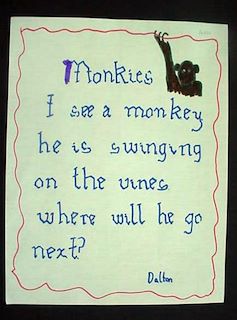 Monkies
I see a monkey
he is swinging
on the vines
where will he go
next?
Dalton